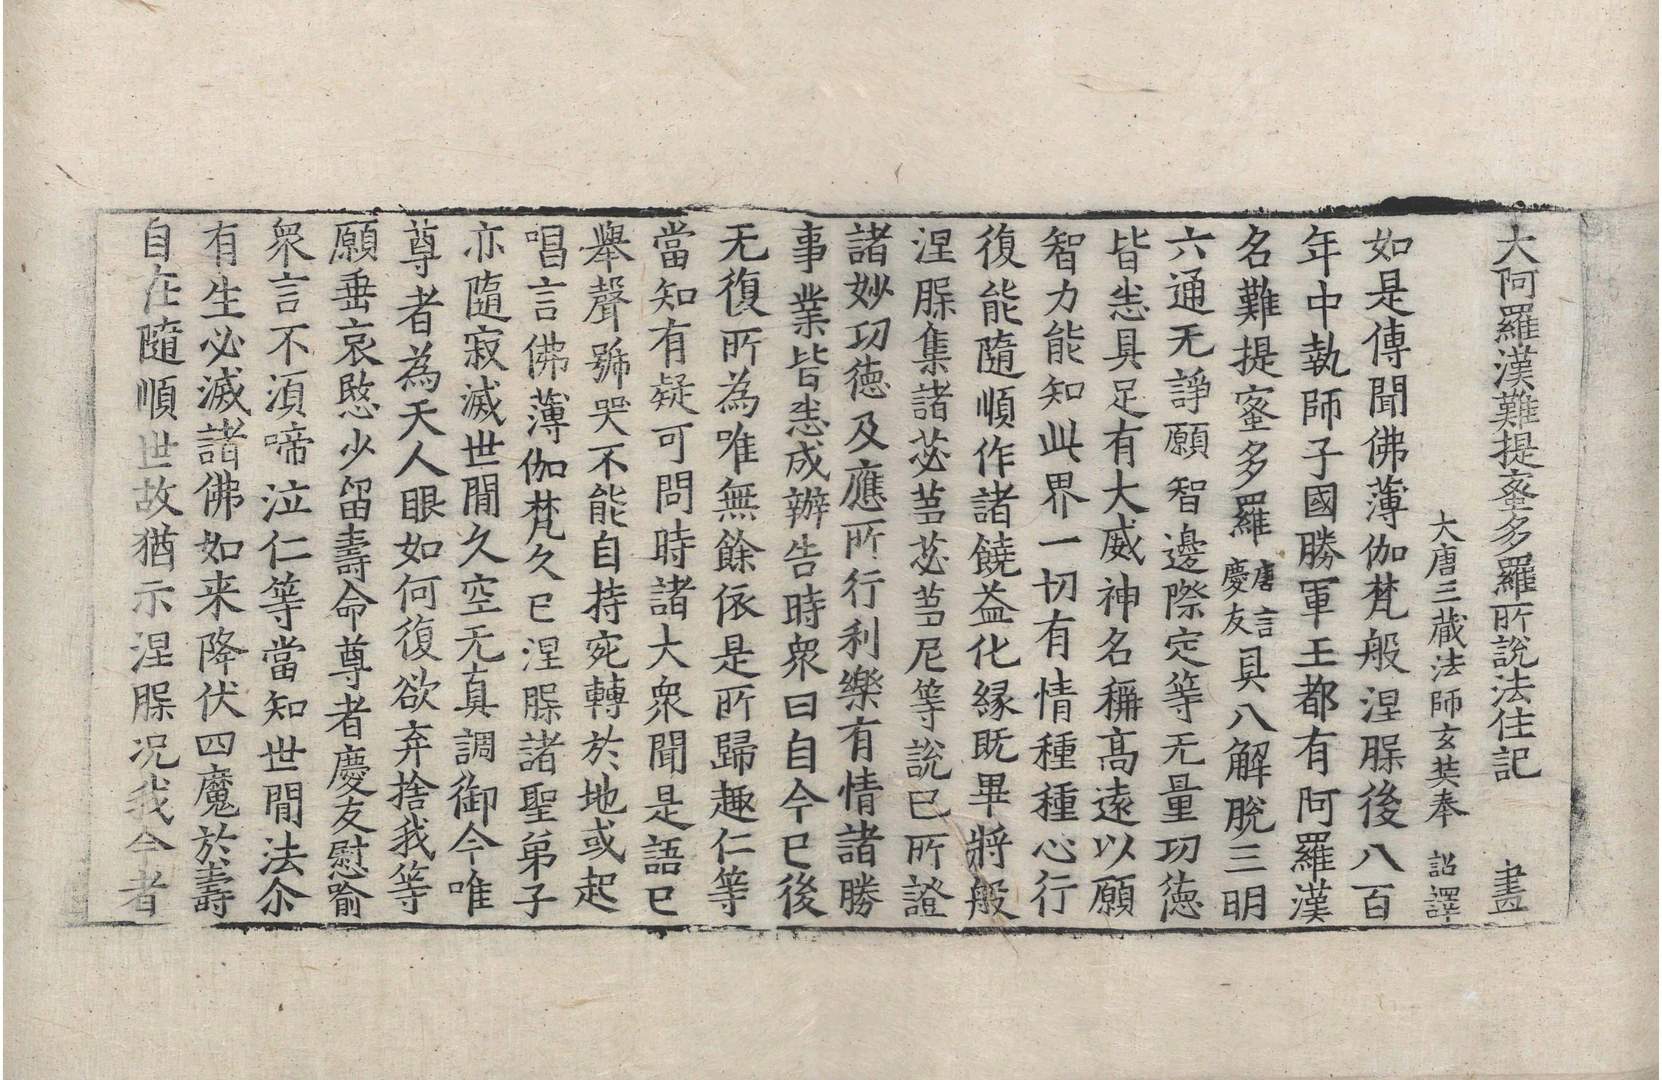 大阿羅漢難提蜜多羅所說法住記 畫
大唐三藏法師玄奘奉 詔譯
如是傳聞佛薄伽梵般涅槃後八百
年中執師子國勝軍王都有阿羅漢
名難提蜜多羅唐言慶友具八解脫三明
六通无諍願智邊際定等无量功德
皆悉具足有大威神名稱高遠以願
智力能知此界一切有情種種心行
復能隨順作諸饒益化緣既畢將般
涅槃集諸苾芻苾芻尼等說已所證
諸妙功德及應所行利樂有情諸勝
事業皆悉成辦告時眾曰自今已後
无復所為唯無餘依是所歸趣仁等
當知有疑可問時諸大眾聞是語已
舉聲號哭不能自持宛轉於地或起
唱言佛薄伽梵久已涅槃諸聖弟子
亦隨寂滅世間久空无真調御今唯
尊者為天人眼如何復欲弃捨我等
願垂哀愍少留壽命尊者慶友慰喻
眾言不須啼泣仁等當知世間法尒
有生必滅諸佛如来降伏四魔於壽
自在隨順世故猶示涅槃况我今者